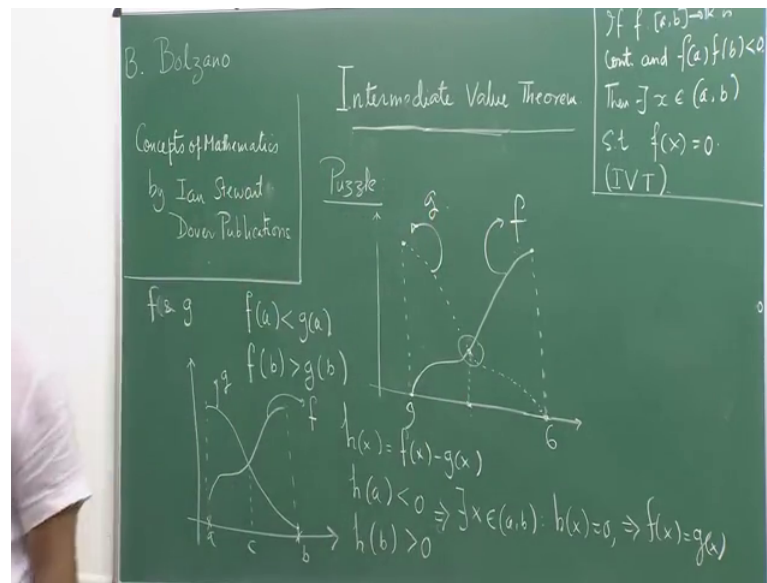 B. Bolzano
Concepts of Mathematics
by Ian Stewart
Dover Publications
Intermediate Value Theorem
If f: [a,b]→R is
Cont. and f(a)f(b)<0.
Then ∃ x ∈ (a,b)
s.t f(x)=0.
(IVT)
Puzzle:
g
f
9
6
f & g
f(a)<g(a)
f(b)>g(b)
g
f
a
c
b
h(x) = f(x)-g(x)
h(a)<0
h(b)>0
⇒ ∃ x∈(a,b): h(x)=0, ⇒ f(x)=g(x)